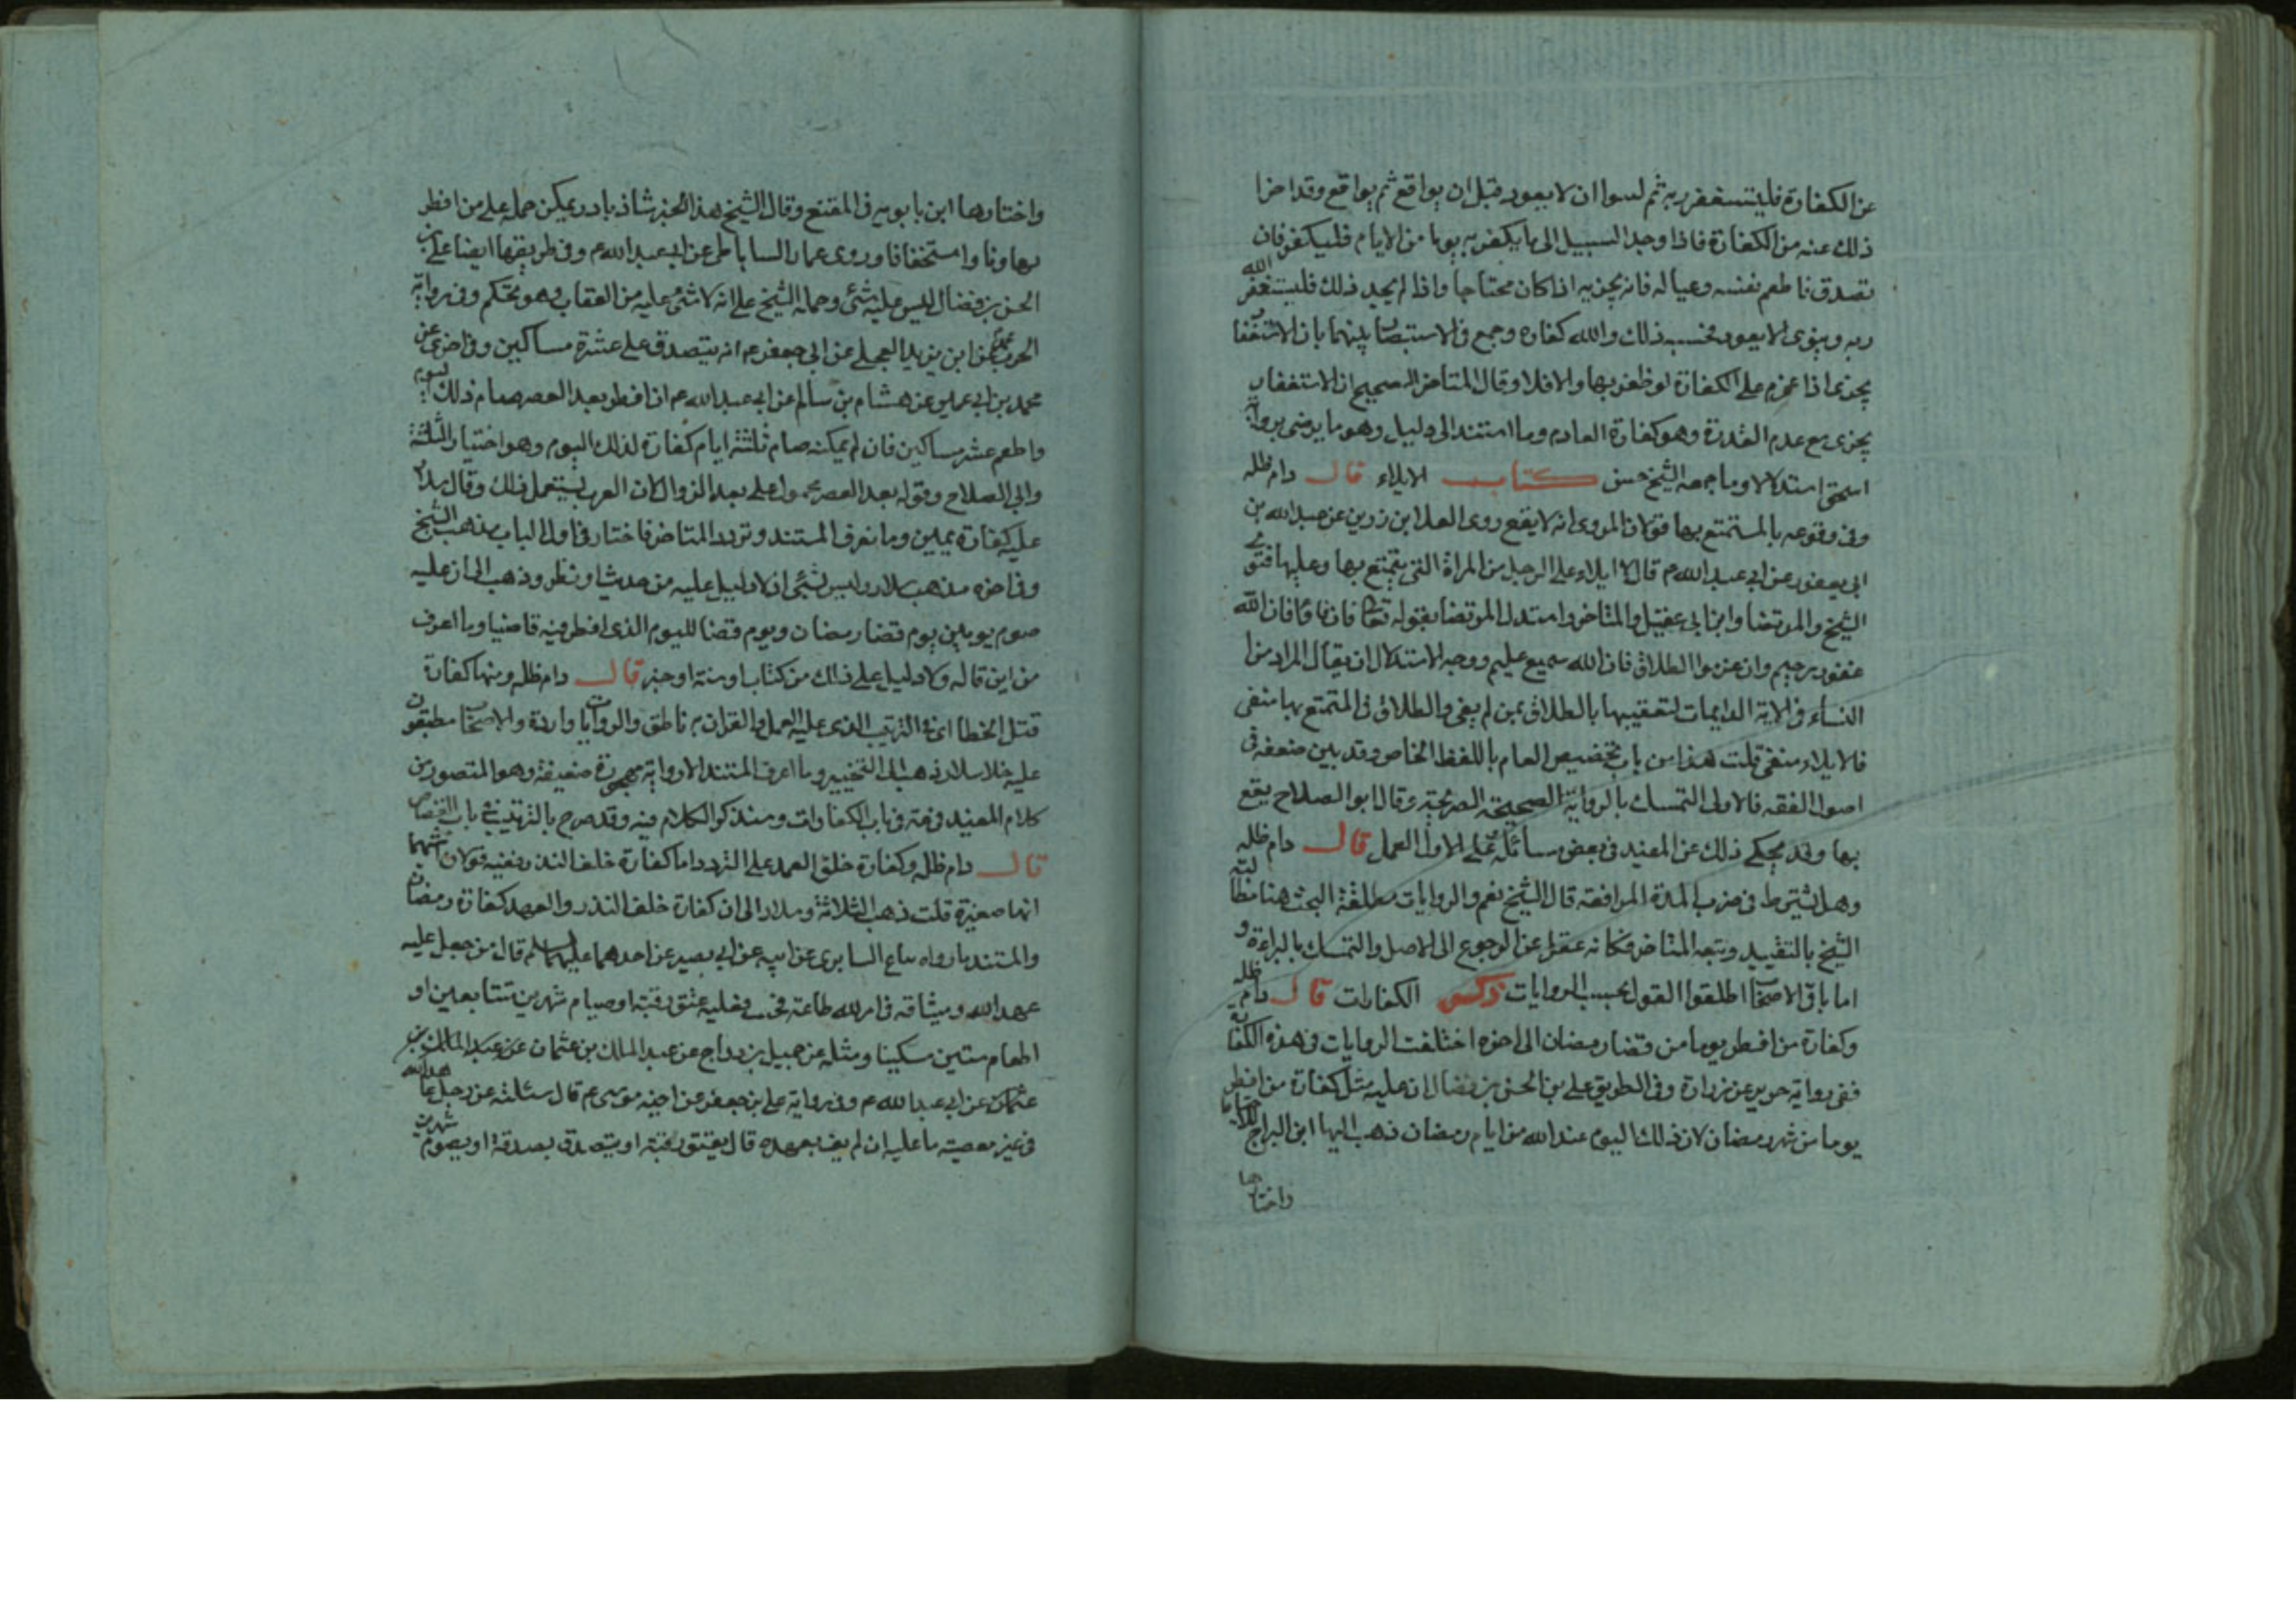 عن الكفارة فليستغفر ربه ثم لسوا ان لا يعود قبل ان يواقع ثم يواقع وقد اجزا
ذلك عنه من الكفارة فاذا وجد السبيل الى ما يكفر به يوما من الايام فليكفر فان
تصدق فاطعم نفسه وعياله فانه يجزيه اذا كان محتاجا واذا لم يجد ذلك فليستغفر الله
ربه وينوى الا يعود فحسبه ذلك والله كفاره وجمع فى الاستبصار بينهما بان الاستغفا
يجزى ما اذا عزم على الكفارة لو ظفر بها والا فلا وقال المتاخر الصحيح ان الاستغفار
يجزى مع عدم القدرة وهو كفارة العادم وما استند الى دليل وهو ما يرضى برواية
اسحق استدلالا وما جمعه الشيخ حسن كتاب الايلاء قال دام ظله
وفى وقوعه بالمستمتع بها قولان المروى انه لا يقع روى العلا ابن رزين عن عبد الله بن
ابى يعفور عن ابى عبد الله م قال لا ايلاء على الرجل من المراة التى يتمتع بها وعليها فتوى
الشيخ والمرتضا وابن ابى عقيل والمتاخر واستدل المرتضا بقوله تعالى فان فاؤا فان الله
غفور رحيم وان عزموا الطلاق فان الله سميع عليم ووجه الاستدلال ان يقال المراد من ا
النساء فى الاية الدايمات لتعقيبها بالطلاق بمن لم يفى والطلاق فى المتمتع بها منفى
فالايلاء منفى قلت هذا من باب تخصيص العام باللفظ الخاص وقد بين ضعفه فى
اصول الفقه فالاولى التمسك بالرواية الصحيحة الصريحة وقال ابو الصلاح يقع
بها وقد يحكى ذلك عن المفيد فى بعض مسائله على الاول العمل قال دام ظله
وهل يشترط فى ضرب المدة المرافعة قال الشيخ نعم والروايات مطلقة البحث هنا مطالبة
الشيخ بالتقييد وتبعه المتاخر وكانه غفل عن الرجوع الى الاصل والتمسك بالبراءة و
اما باقى الاصحاب اطلقوا القول بحسب الروايات ذكر الكفارات قال دام ظله
وكفارة من افطر يوما من قضا رمضان الى اخره اختلفت الروايات فى هذه الكفارة
ففى رواية حريز عن زرارة وفى الطريق على بن الحسن بن فضال ان عليه مثل كفارة من افطر
يوما من شهر رمضان لان ذلك اليوم عند الله من ايام رمضان ذهب اليها ابن البراج
واختارها
واختارها ابن بابويه فى المقنع وقال الشيخ هذا الخبر شاذ نادر يمكن حمله على من افطر
تهاونا واستخفافا وروى عمار الساباطى عن ابى عبد الله م وفى طريقها ايضا على بن
الحسن بن فضال ليس عليه شئ وحمله الشيخ على انه لا شئ عليه من العقاب وهو تحكم وفى رواية
عن ابن يزيد العجلى عن ابى جعفر م انه يتصدق على عشرة مساكين وفى اخرى عن
محمد بن ابى عمير عن هشام بن سالم عن ابى عبد الله م ان افطر بعد العصر صام ذلك اليوم
واطعم عشر مساكين فان لم يمكنه صام ثلثة ايام كفارة لذلك اليوم وهو اختيار الثلثة
وابى الصلاح وقوله بعد العصر محمول على بعد الزوال لان العرب يستعمل ذلك وقال سلار
عليه كفارة يمين وما نعرف المستند وتردد المتاخر فاختار فى اول الباب مذهب الشيخ
وفى اخره مذهب سلار وليس بشئ اذ لا دليل عليه من حديث او نظر وذهب الى ان عليه
صوم يومين يوم قضا رمضان ويوم قضا لليوم الذى افطر فيه قاضيا وما اعرف
من اين قاله ولا دليل على ذلك من كتاب او سنة او خبر قال دام ظله ومنها كفارة
قتل الخطا اى فى الترتيب الذى عليه العمل والقران به ناطق والروايات واردة والاصحاب مطبقون
عليه خلا سلار ذهب الى التخيير وما اعرف المستند الا رواية مهجورة ضعيفة وهو المتصور من
كلام المفيد فى باب الكفارات وسنذكر الكلام فيه وقد صرح بالترتيب فى باب القضا
قال دام ظله وكفارة خلف العهد على التردد اما كفارة خلف النذر ففيه قولان اشبهها
انها صغيرة قلت ذهب الثلاثة وسلار الى ان كفارة خلف النذر والعهد كفارة رمضان
والمستند ما رواه عن ابيه عن ابى بصير عن احدهما عليهما السلم قال من جعل عليه
عهد الله وميثاقه فى امر لله طاعة فحنث فعليه عتق رقبة او صيام شهرين متتابعين او
اطعام ستين مسكينا ومثله عن جميل بن دراج عن عبد الملك بن عثمان عن عبد الملك بن
عثمان عن ابى عبد الله م وفى رواية على بن جعفر عن اخيه موسى م قال سئلته عن رجل عاهد الله
فى غير معصية ما عليه ان لم يف بعهده قال يعتق رقبة او يتصدق بصدقة او يصوم شهرين